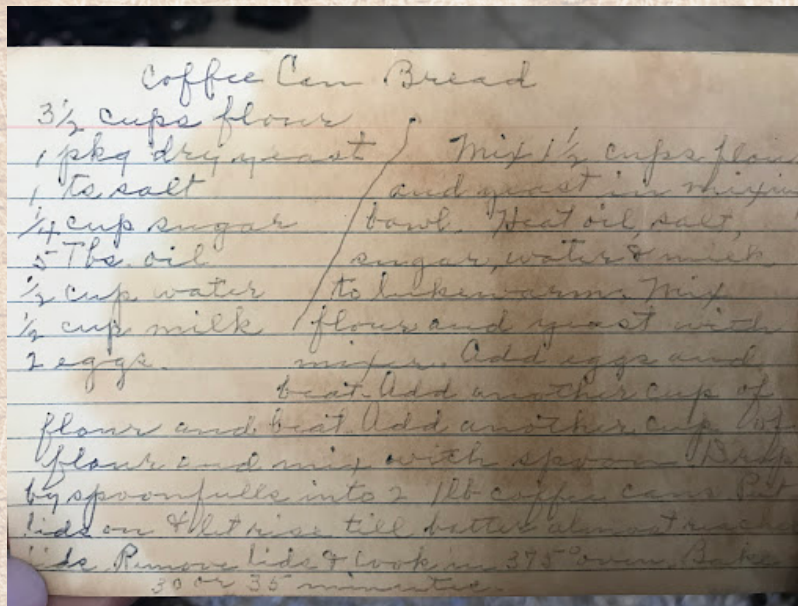 Coffee Can Bread
3 1/2 cups flour
1 pkg dry yeast
1 ts salt
1/4 cup sugar
5 Tbs. oil
1/2 cup water
1/2 cup milk
2 eggs.
Mix 1 1/2 cups flour
and yeast in mixin
bowl. Heat oil, salt,
sugar, water & milk
to lukewarm. Mix
flour and yeast with
mixer. Add eggs and
beat. Add another cup of
flour and beat. Add another cup of
flour and mix with spoon. Drop
by spoonfulls into 2 1lb coffee cans. Put
lids on & let rise till batter almost reaches
lids. Remove lids & cook in 375° oven. Bake
30 or 35 minutes.